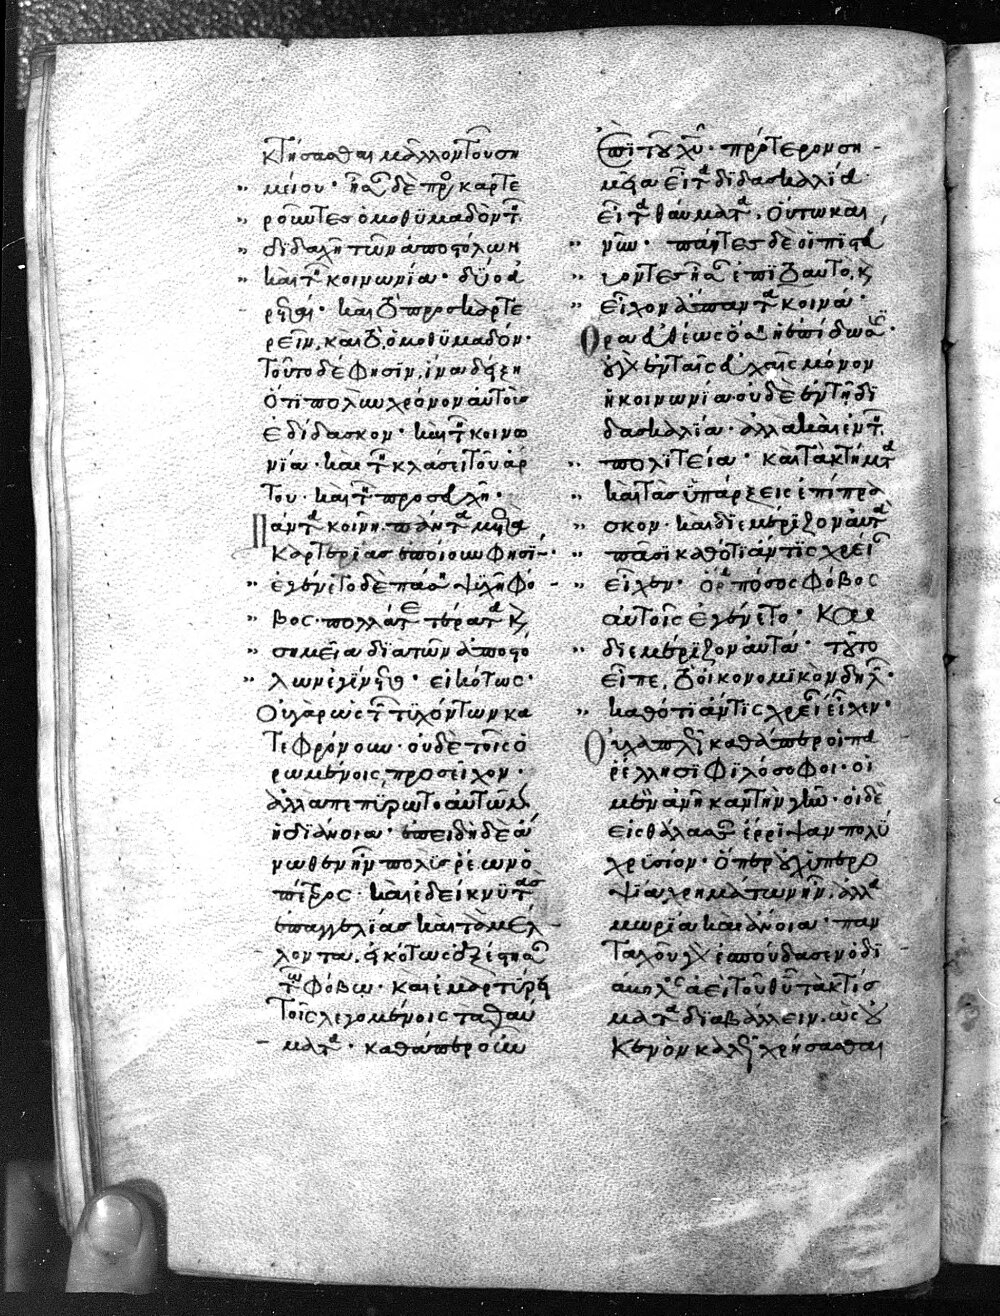 κτήσασθαι μᾶλλον τοῦ ση
μείου· ἦσαν δὲ προσκαρτε
ροῦντες ὁμοθυμαδὸν τῇ
διδαχῇ τῶν ἀποστόλων
καὶ τῇ κοινωνία· δύο ἀ
ρεταί· καὶ τὸ προσκαρτε
ρεῖν, καὶ τὸ ὁμοθυμαδόν·
τοῦτο δέ φησιν, ἵνα δείξῃ
ὅτι πολὺν χρόνον αὐτοῖς
ἐδίδασκον· καὶ τῇ κοινω
νία· καὶ τῇ κλάσει τοῦ ἄρ
του· καὶ τῇ προσευχῇ·
Πάντα κοινῇ· πάντα μετὰ
καρτερίας ἐποίουν φησί·
ἐγένετο δὲ πάση ψυχῇ φό
βος· πολλά τε τέρατα κ
σημεῖα διὰ τῶν ἀποστό
λων ἐγίνετο· εἰκότως·
Οὐ γὰρ ὡς τῶν τυχόντων κα
τεφρόνουν· οὐδὲ τοῖς ὁ
ρωμένοις προσεῖχον·
ἀλλὰ πεπύρωτο αὐτῶν
ἡ διάνοια· ἐπειδὴ δὲ ἄ
νωθεν ἦν πολὺς ῥέων ὁ
πέτρος· καὶ ἐδείκνυ τὰς
ἐπαγγελίας καὶ τὰ μέλ
λοντα, εἰκότως ἐξέστησαν
τῷ φόβῳ· καὶ ἐμαρτύρει
τοῖς λεγομένοις τὰ θαύ
ματα· καθάπερ οὖν
ἐπὶ τοῦ χυ· πρότερον ση
μεῖα εἶτα διδασκαλία·
εἶτα θαύματα. οὕτω καὶ
νῦν· πάντες δὲ οἱ πιστεύ
οντες ἦσαν ἐπὶ τὸ αὐτό, κ
εἶχον ἅπαντα κοινά·
Ὅρα εὐθέως ὅση ἡ ἐπίδοσις·
οὐχ ἐν ταῖς εὐχαῖς μόνον
ἡ κοινωνία· οὐδὲ ἐν τῇ δι
δασκαλία· ἀλλὰ καὶ ἐν τῇ
πολιτεία· καὶ τὰ κτήματα
καὶ τὰς ὑπάρξεις ἐπίπρα
σκον· καὶ διεμέριζον αὐτὰ
πᾶσι καθότι ἄν τις χρείαν
εἶχεν· ὅρα πόσος φόβος
αὐτοῖς ἐγένετο· Καὶ
διεμέριζον αὐτά· τοῦτο
εἶπε, τὸ οἰκονομικὸν δηλῶν·
καθότι ἄν τις χρείαν εἶχεν·
Οὐχ ἁπλῶς καθάπερ οἱ πα
ρ ἕλλησι φιλόσοφοι· οἱ
μὲν ἀνῆκαν τὴν γῆν· οἱ δὲ
εἰς θάλασσαν ἔρριψαν πολὺ
χρυσίον· ὅπερ οὐχ ὑπερο
ψία χρημάτων ἦν, ἀλλὰ
μωρία καὶ ἄνοια· παν
ταχοῦ γὰρ ἐσπούδασεν ὁ δι
άβολος ἀεὶ τοῦ θυ τὰ κτίσ
ματα διαβάλλειν. ὡς οὐ
κ ἐνὸν καλῶς χρήσασθαι